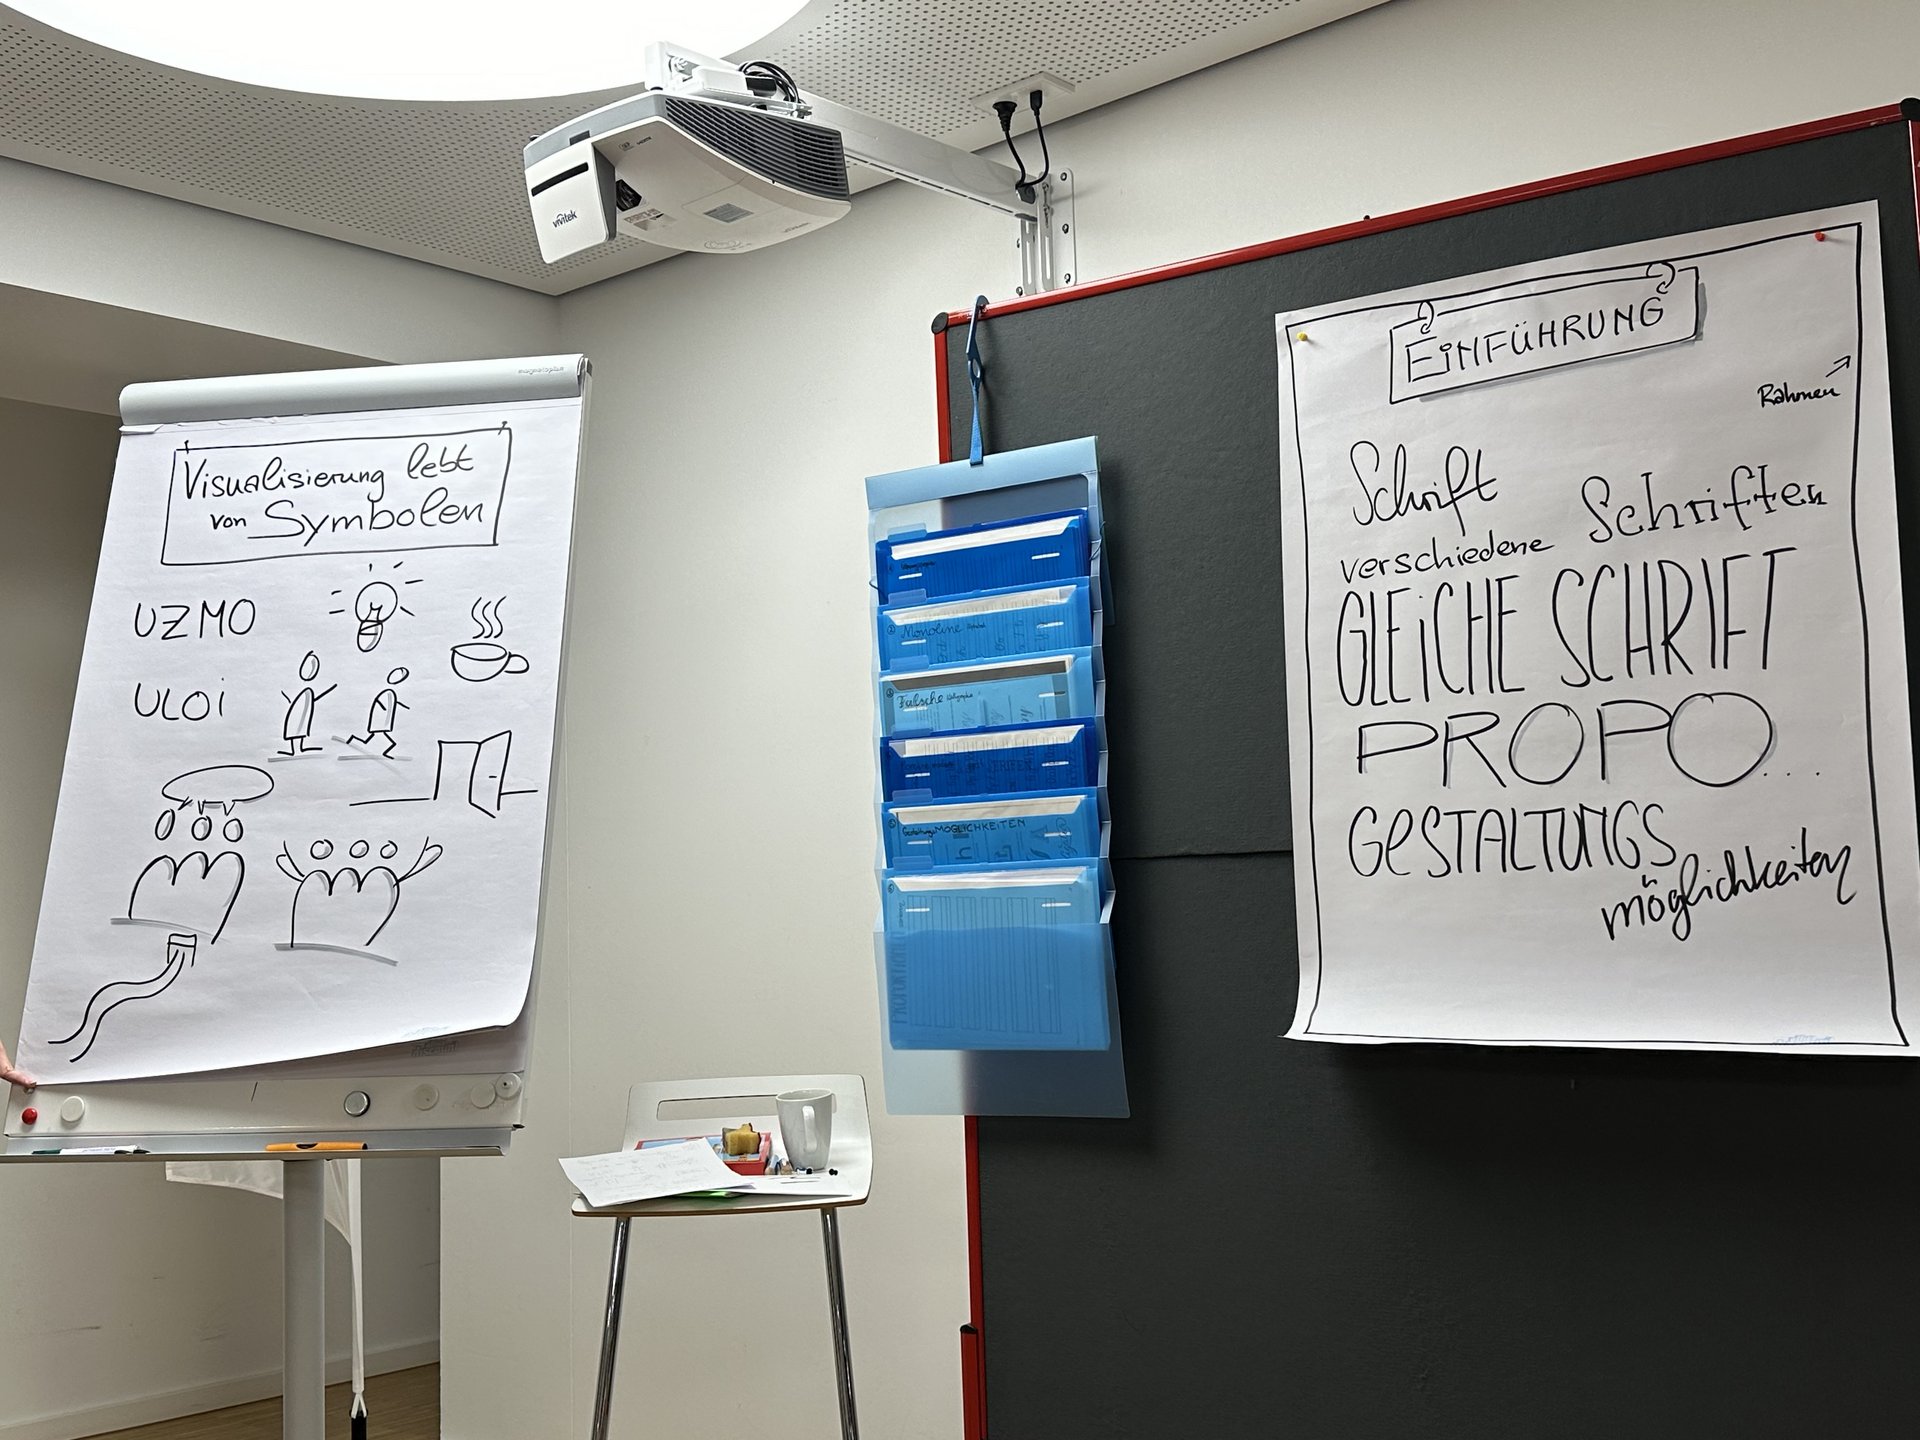 vivitek
magnetoplan
Visualisierung lebt
von Symbolen
UZMO
ULOi
Monoline
Falsche
Gestaltungs MÖGLICHKEITEN
EiNFÜHRUNG
Rahmen
Schrift
verschiedene Schriften
GLEiCHE SCHRIFT
PROPO...
GeSTALTUNGS
möglichkeiten